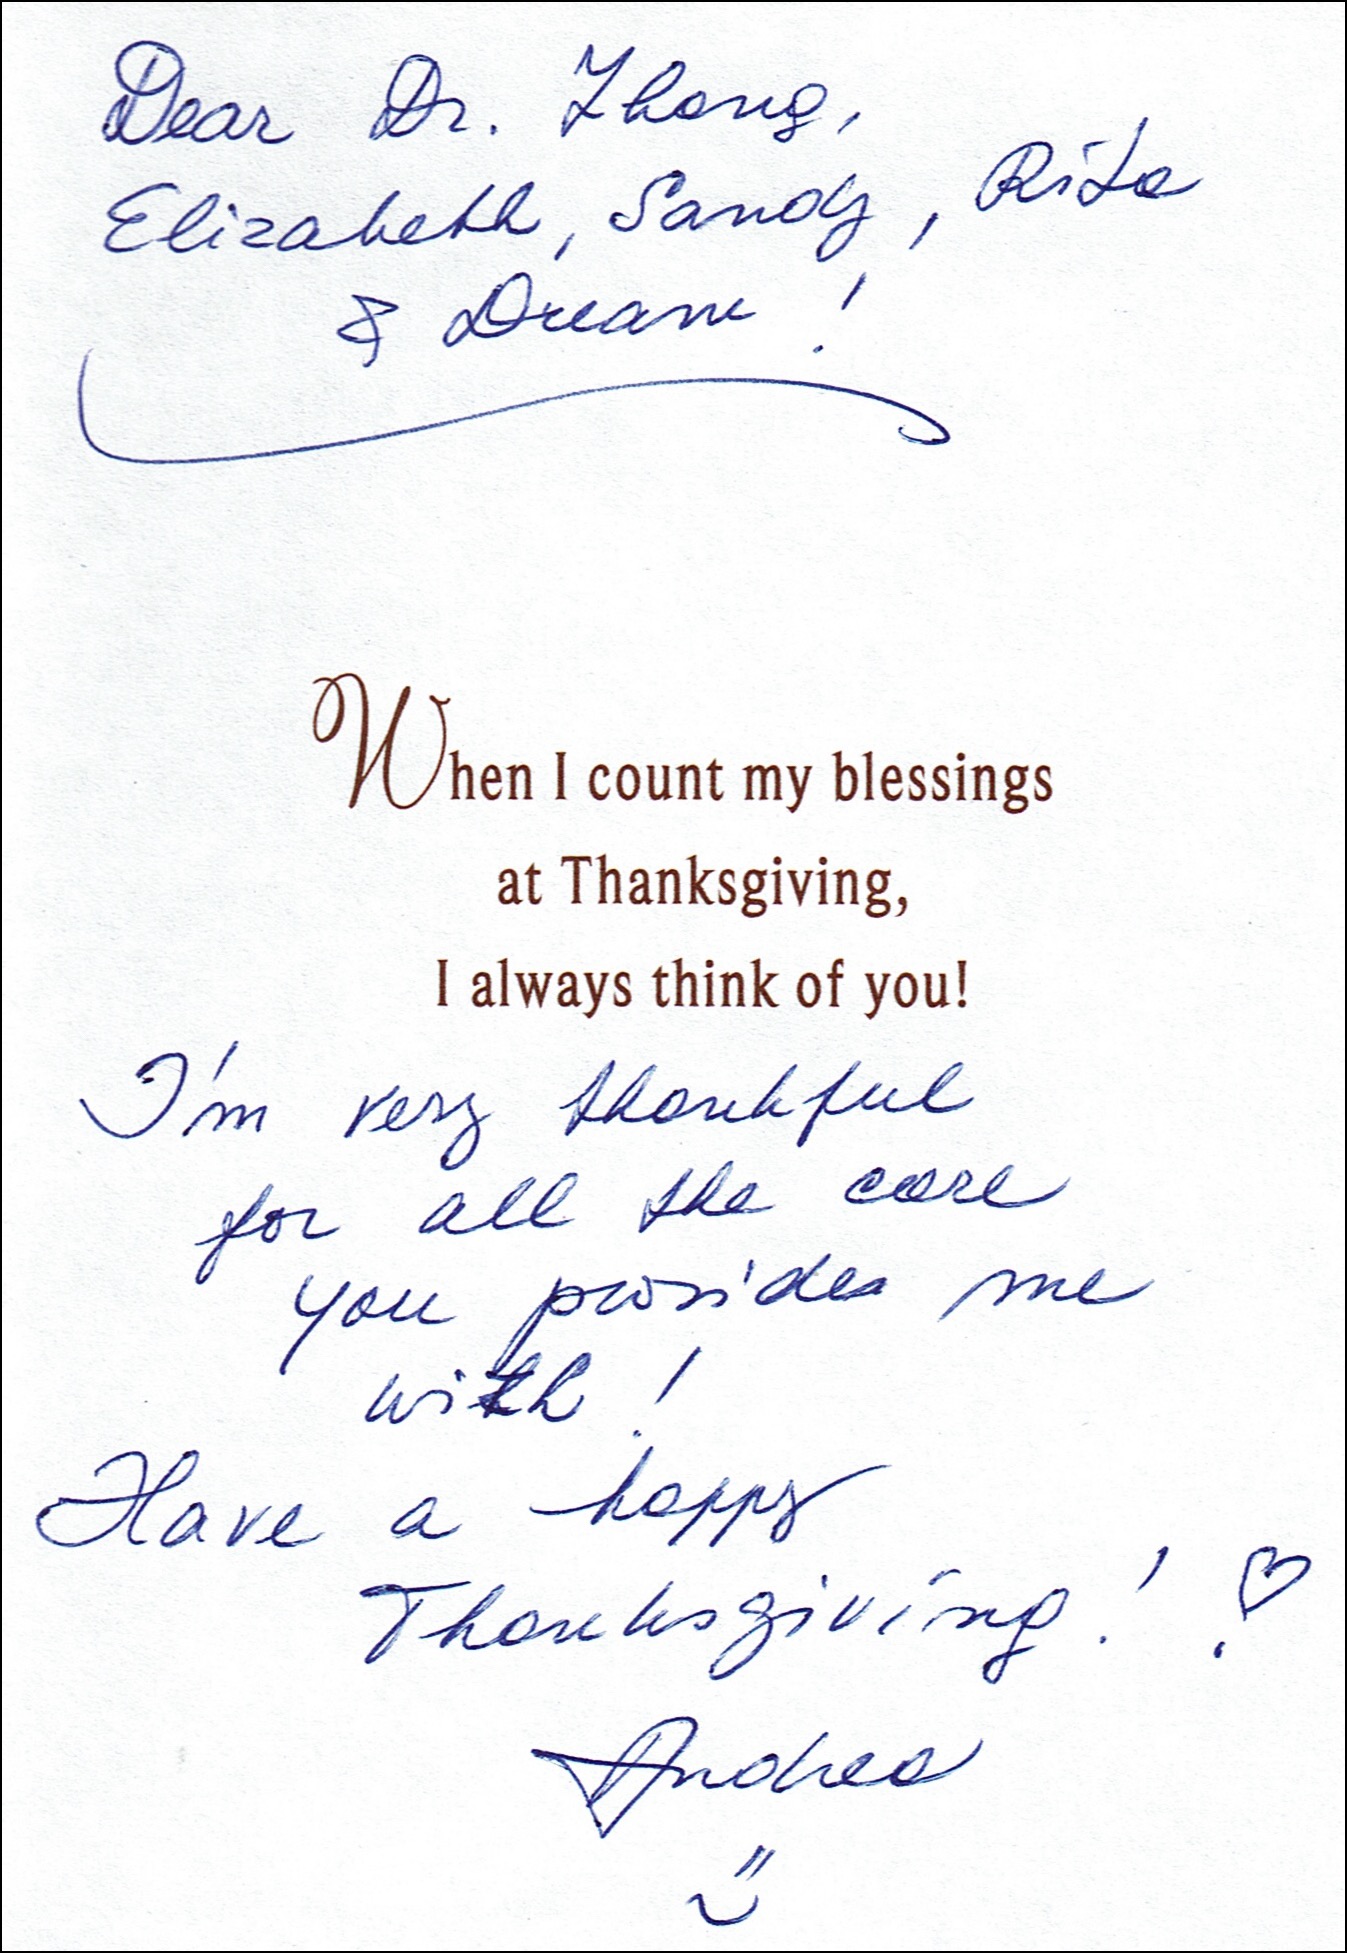 Dear Dr. Zhang,
Elizabeth, Sandy, Rita
& Dream!
When I count my blessings
at Thanksgiving,
I always think of you!
I'm very thankful
for all the care
you provides me
with!
Have a happy
Thanksgiving!
Andrea